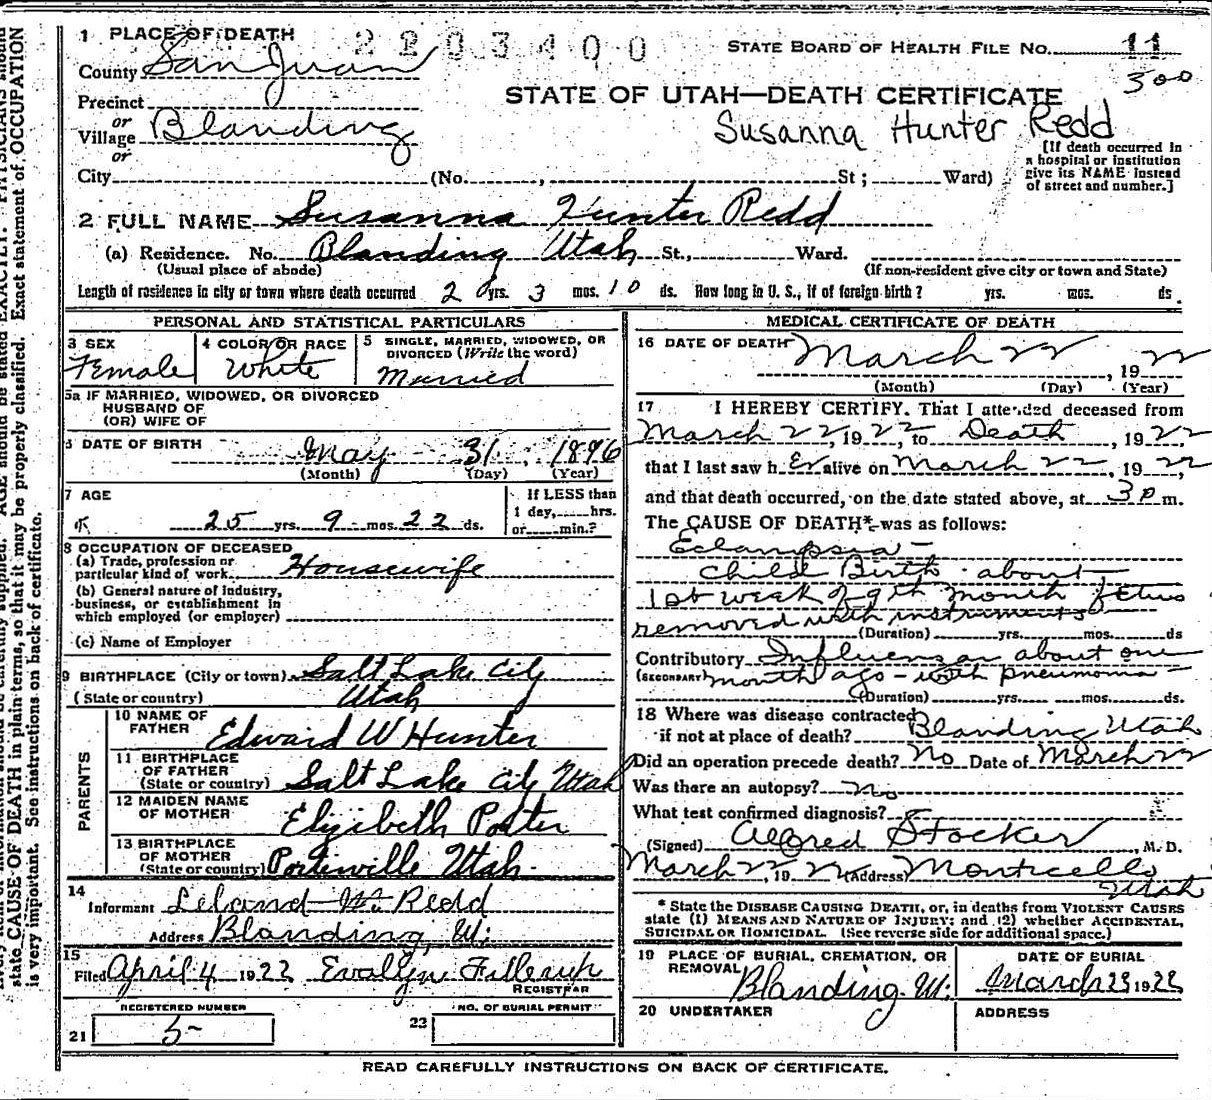 1 PLACE OF DEATH 2203400 STATE BOARD OF HEALTH FILE NO. 11
County San Juan 300
STATE OF UTAH—DEATH CERTIFICATE
Precinct
or
Village Blanding Susanna Hunter Redd
or
[If death occurred in a hospital or institution give its NAME instead of street and number.]
City (No. , St ; Ward)
2 FULL NAME Susanna Hunter Redd
(a) Residence. No. Blanding Utah St., Ward.
(Usual place of abode) (If non-resident give city or town and State)
Length of residence in city or town where death occurred 2 yrs. 3 mos. 10 ds. How long in U. S., if of foreign birth? yrs. mos. ds.
PERSONAL AND STATISTICAL PARTICULARS
3 SEX Female
4 COLOR OR RACE White
5 SINGLE, MARRIED, WIDOWED, OR DIVORCED (Write the word) Married
5a IF MARRIED, WIDOWED, OR DIVORCED
HUSBAND OF
(OR) WIFE OF
6 DATE OF BIRTH May 31, 1896
(Month) (Day) (Year)
7 AGE 25 yrs. 9 mos. 22 ds.
If LESS than
1 day, hrs.
or min.?
8 OCCUPATION OF DECEASED
(a) Trade, profession or
particular kind of work Housewife
(b) General nature of industry,
business, or establishment in
which employed (or employer)
(c) Name of Employer
9 BIRTHPLACE (City or town) Salt Lake City
(State or country) Utah
PARENTS
10 NAME OF
FATHER Edward W Hunter
11 BIRTHPLACE
OF FATHER
(State or country) Salt Lake City Utah
12 MAIDEN NAME
OF MOTHER Elizibeth Porter
13 BIRTHPLACE
OF MOTHER
(State or country) Porterville Utah
14
Informant Leland W. Redd
Address Blanding, Ut.
15
Filed April 4 1922 Evallyn
REGISTRAR
REGISTERED NUMBER
21 5
NO. OF BURIAL PERMIT
22
MEDICAL CERTIFICATE OF DEATH
16 DATE OF DEATH March 22, 1922
(Month) (Day) (Year)
17 I HEREBY CERTIFY. That I attended deceased from
March 22, 1922, to Death, 1922
that I last saw her alive on March 22, 1922
and that death occurred, on the date stated above, at 3 p m.
The CAUSE OF DEATH* was as follows:
Eclampsia -
Child Birth about
1st week of 9th month fetus
removed with instruments
(Duration) yrs. mos. ds
Contributory Influenza about one
(SECONDARY) month ago - with pneumonia
(Duration) yrs. mos. ds.
18 Where was disease contracted
if not at place of death? Blanding Utah
Did an operation precede death? No Date of March 22
Was there an autopsy? no
What test confirmed diagnosis?
(Signed) Alfred Stocker, M. D.
March 22, 1922 (Address) Monticello
Utah
* State the DISEASE CAUSING DEATH, or, in deaths from VIOLENT CAUSES
state (1) MEANS AND NATURE OF INJURY; and (2) whether ACCIDENTAL,
SUICIDAL OR HOMICIDAL. (See reverse side for additional space.)
19 PLACE OF BURIAL, CREMATION, OR
REMOVAL Blanding Ut.
DATE OF BURIAL
March 23 1922
20 UNDERTAKER
ADDRESS
READ CAREFULLY INSTRUCTIONS ON BACK OF CERTIFICATE.
AGE should be stated EXACTLY. PHYSICIANS should
state CAUSE OF DEATH in plain terms, so that it may be properly classified. Exact statement of OCCUPATION
is very important. See instructions on back of certificate.